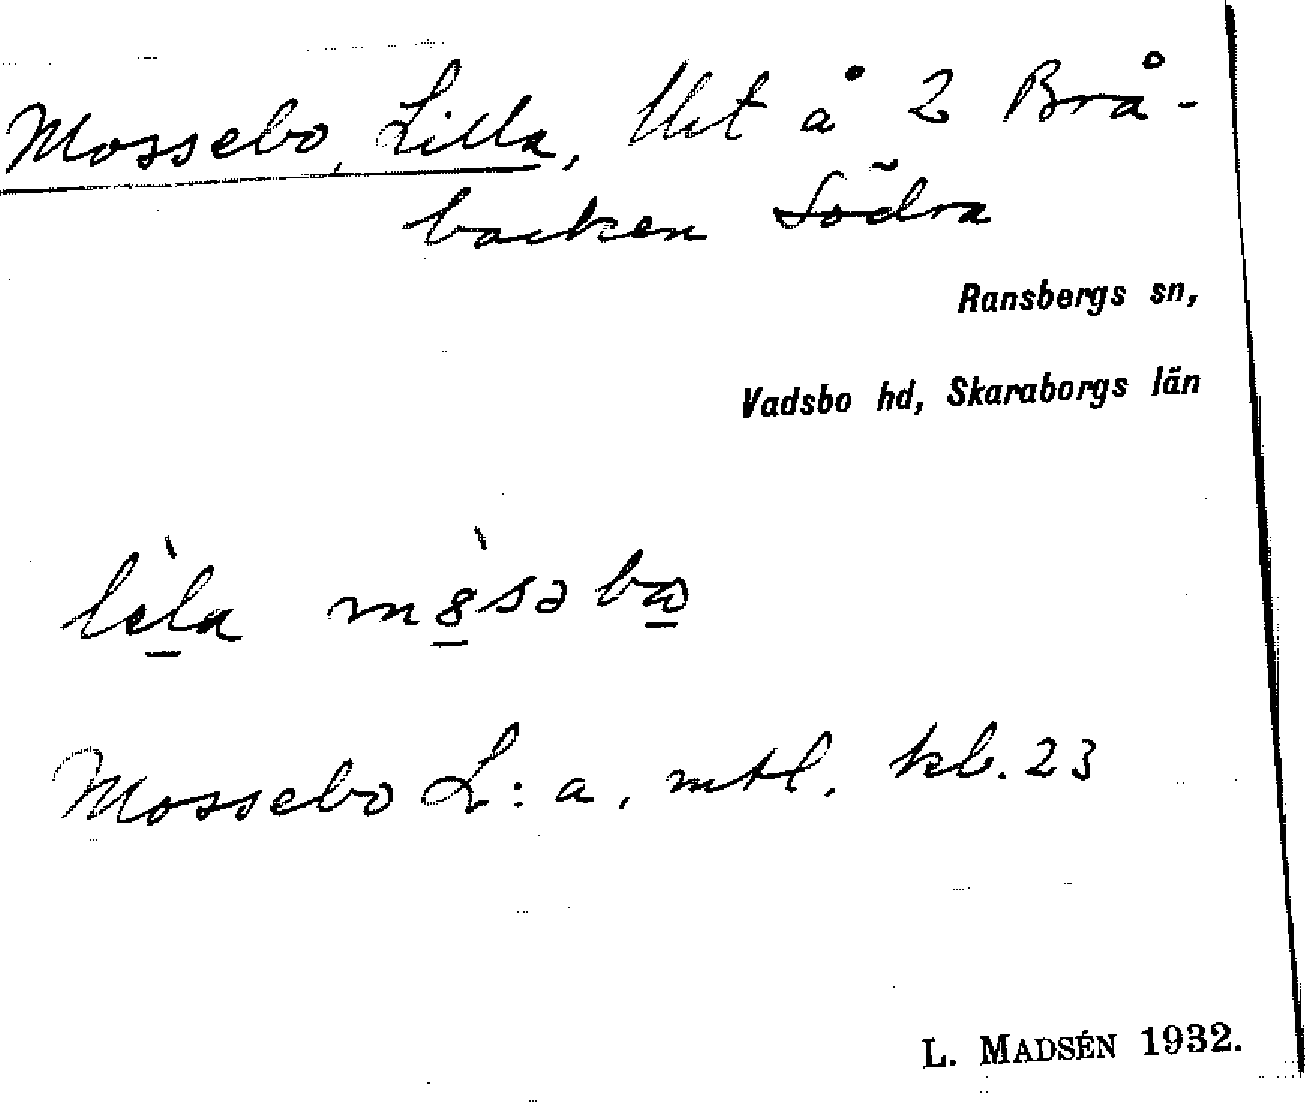 Mossebo, Lilla, lht å 2 Brå-
backen Södra
Ransbergs sn,
Vadsbo hd, Skaraborgs län
Mossebo L:a, mtl, kb. 23
L. MADSÉN 1932.